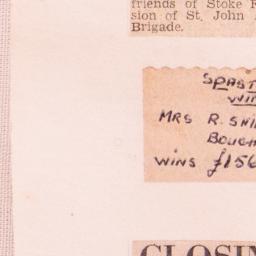 friends of Stoke
sion of St. John
Brigade.
SPAST
WIN
MRS R. SNI
BOUGH
WINS £156
CLOSIN